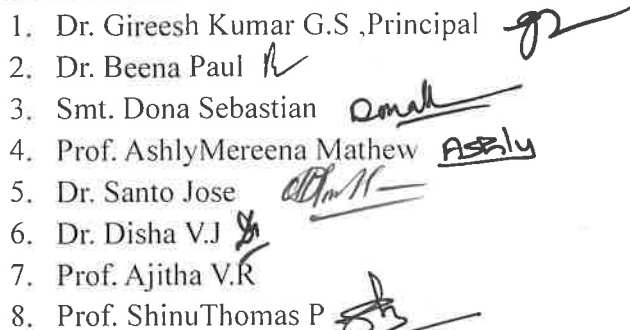 1. Dr. Gireesh Kumar G.S ,Principal
2. Dr. Beena Paul
3. Smt. Dona Sebastian
4. Prof. AshlyMereena Mathew Ashly
5. Dr. Santo Jose
6. Dr. Disha V.J
7. Prof. Ajitha V.R
8. Prof. ShinuThomas P